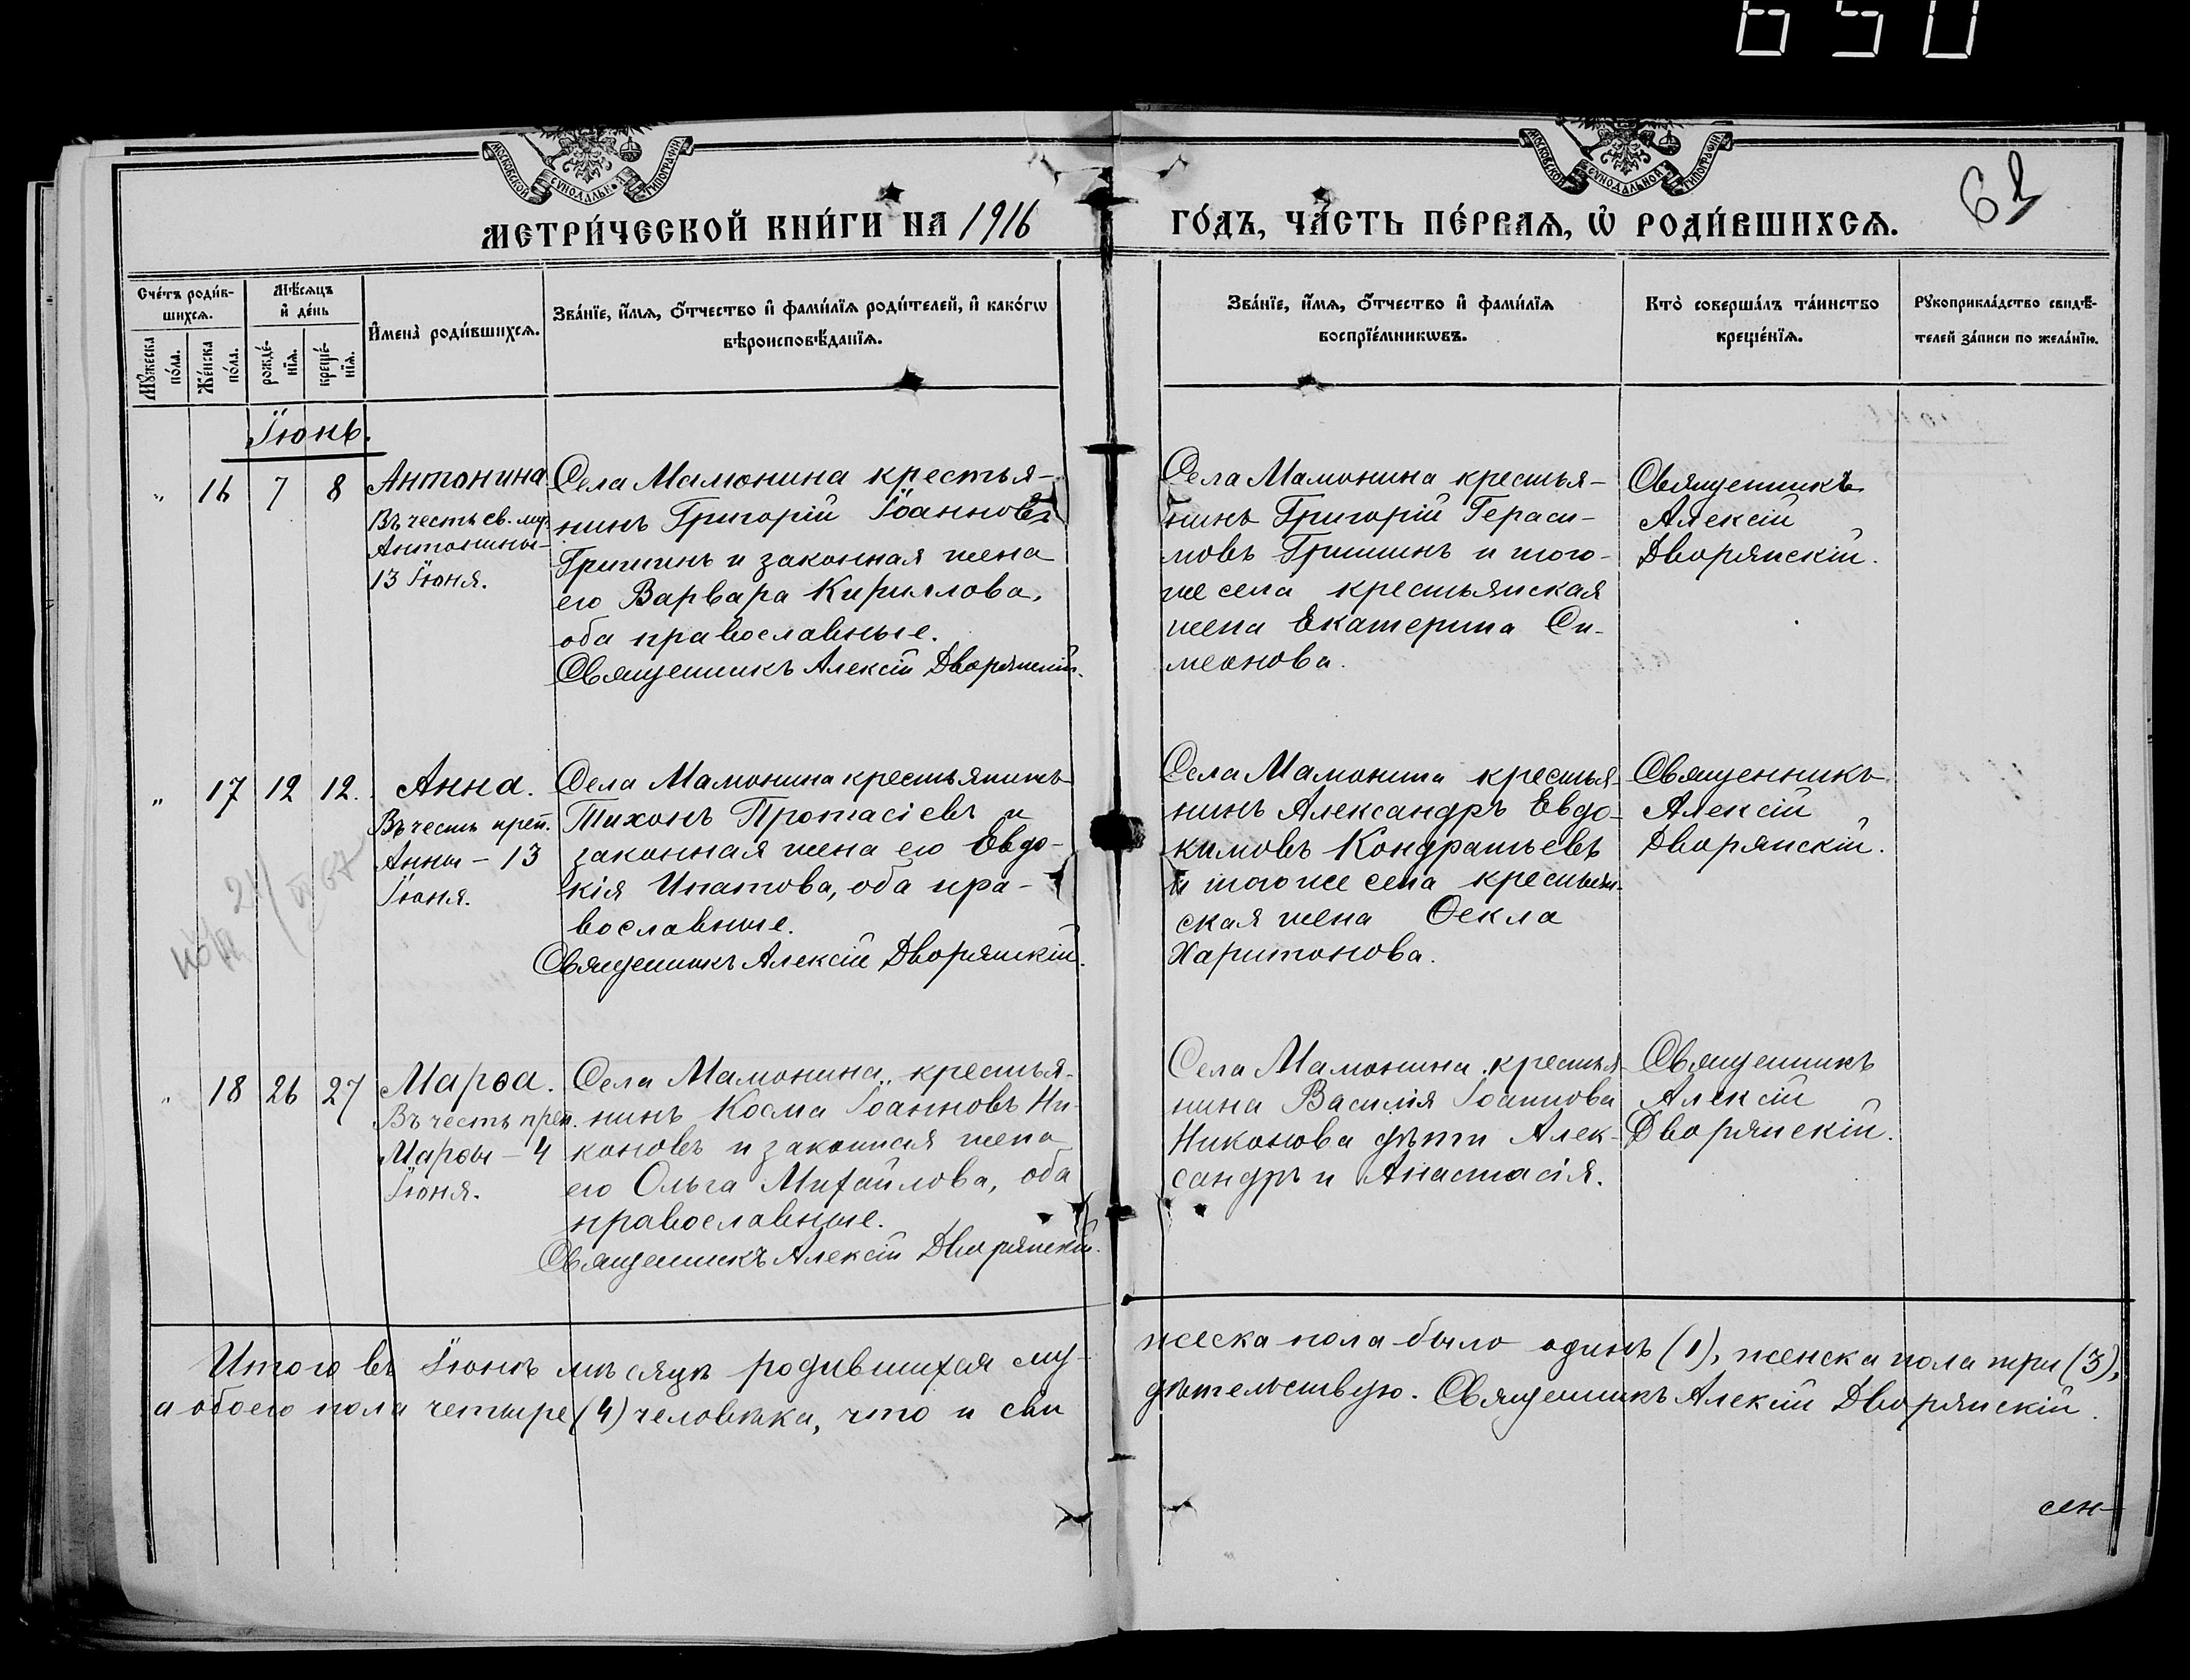 650
МОСКОВСКОЙ СУНОДАЛЬНОЙ ТИПОГРАФІИ
МОСКОВСКОЙ СУНОДАЛЬНОЙ ТИПОГРАФІИ
МЕТРИ́ЧЕСКОЙ КНИ́ГИ НА 1916
ГО́ДЪ, ЧА́СТЬ ПЕ́РВАѦ, Ѡ҆ РОДИ́ВШИХСѦ.
Сче́тъ роди́в-
шихсѧ.
Мꙋ́жеска
по́ла.
Же́нска
по́ла.
Мѣ́сѧцъ
и҆ де́нь
рожде́-
нїѧ.
креще́-
нїѧ.
И҆мена̀ роди́вшихсѧ.
Зва́нїе, и҆́мѧ, ѻ҆́тчество и҆ фами́лїѧ роди́телей, и҆ како́гѡ
вѣроисповѣ́данїѧ.
Зва́нїе, и҆́мѧ, ѻ҆́тчество и҆ фами́лїѧ
воспрїе́мникѡвъ.
Кто̀ соверша́лъ та́инство
креще́нїѧ.
Рꙋкоприкла́дство свидѣ́-
телей за́писи по жела́нїю.
Іюнь.
„ 16 7 8
Антонина
Въ честь св. муч.
Антонины-
13 Іюня.
Села Мамонина крестья-
нинъ Григорій Іоанновъ
Гришинъ и законная жена
его Варвара Кириллова,
оба православные.
Священникъ Алексій Дворянскій.
Села Мамонина крестья-
нинъ Григорій Гераси-
мовъ Гришинъ и того-
же села крестьянская
жена Екатерина Си-
меонова.
Священникъ
Алексій
Дворянскій.
„ 17 12 12.
Анна.
Въ честь преп.
Анны - 13
Іюня.
Села Мамонина крестьянинъ
Тихонъ Протасіевъ и
законная жена его Евдо-
кія Ипатова, оба пра-
вославные.
Священникъ Алексій Дворянскій.
Села Мамонина крестья-
нинъ Александръ Евдо-
кимовъ Кондратьевъ
и того же села крестьян-
ская жена Ѳекла
Харитонова.
Священникъ
Алексій
Дворянскій.
„ 18 26 27
Марѳа.
Въ честь преп.
Марѳы - 4
Іюня.
Села Мамонина крестья-
нинъ Косма Іоанновъ Ни-
коновъ и законная жена
его Ольга Михайлова, оба
православные.
Священникъ Алексій Дворянскій.
Села Мамонина крестья-
нина Василія Іоаннова
Никонова дѣти Алек-
сандръ и Анастасія.
Священникъ
Алексій
Дворянскій.
Итого въ Іюнѣ мѣсяцѣ родившихся му-
жеска пола было одинъ (1), женска пола три (3),
а обоего пола четыре (4) человѣка, что и сви
дѣтельствую. Священникъ Алексій Дворянскій.